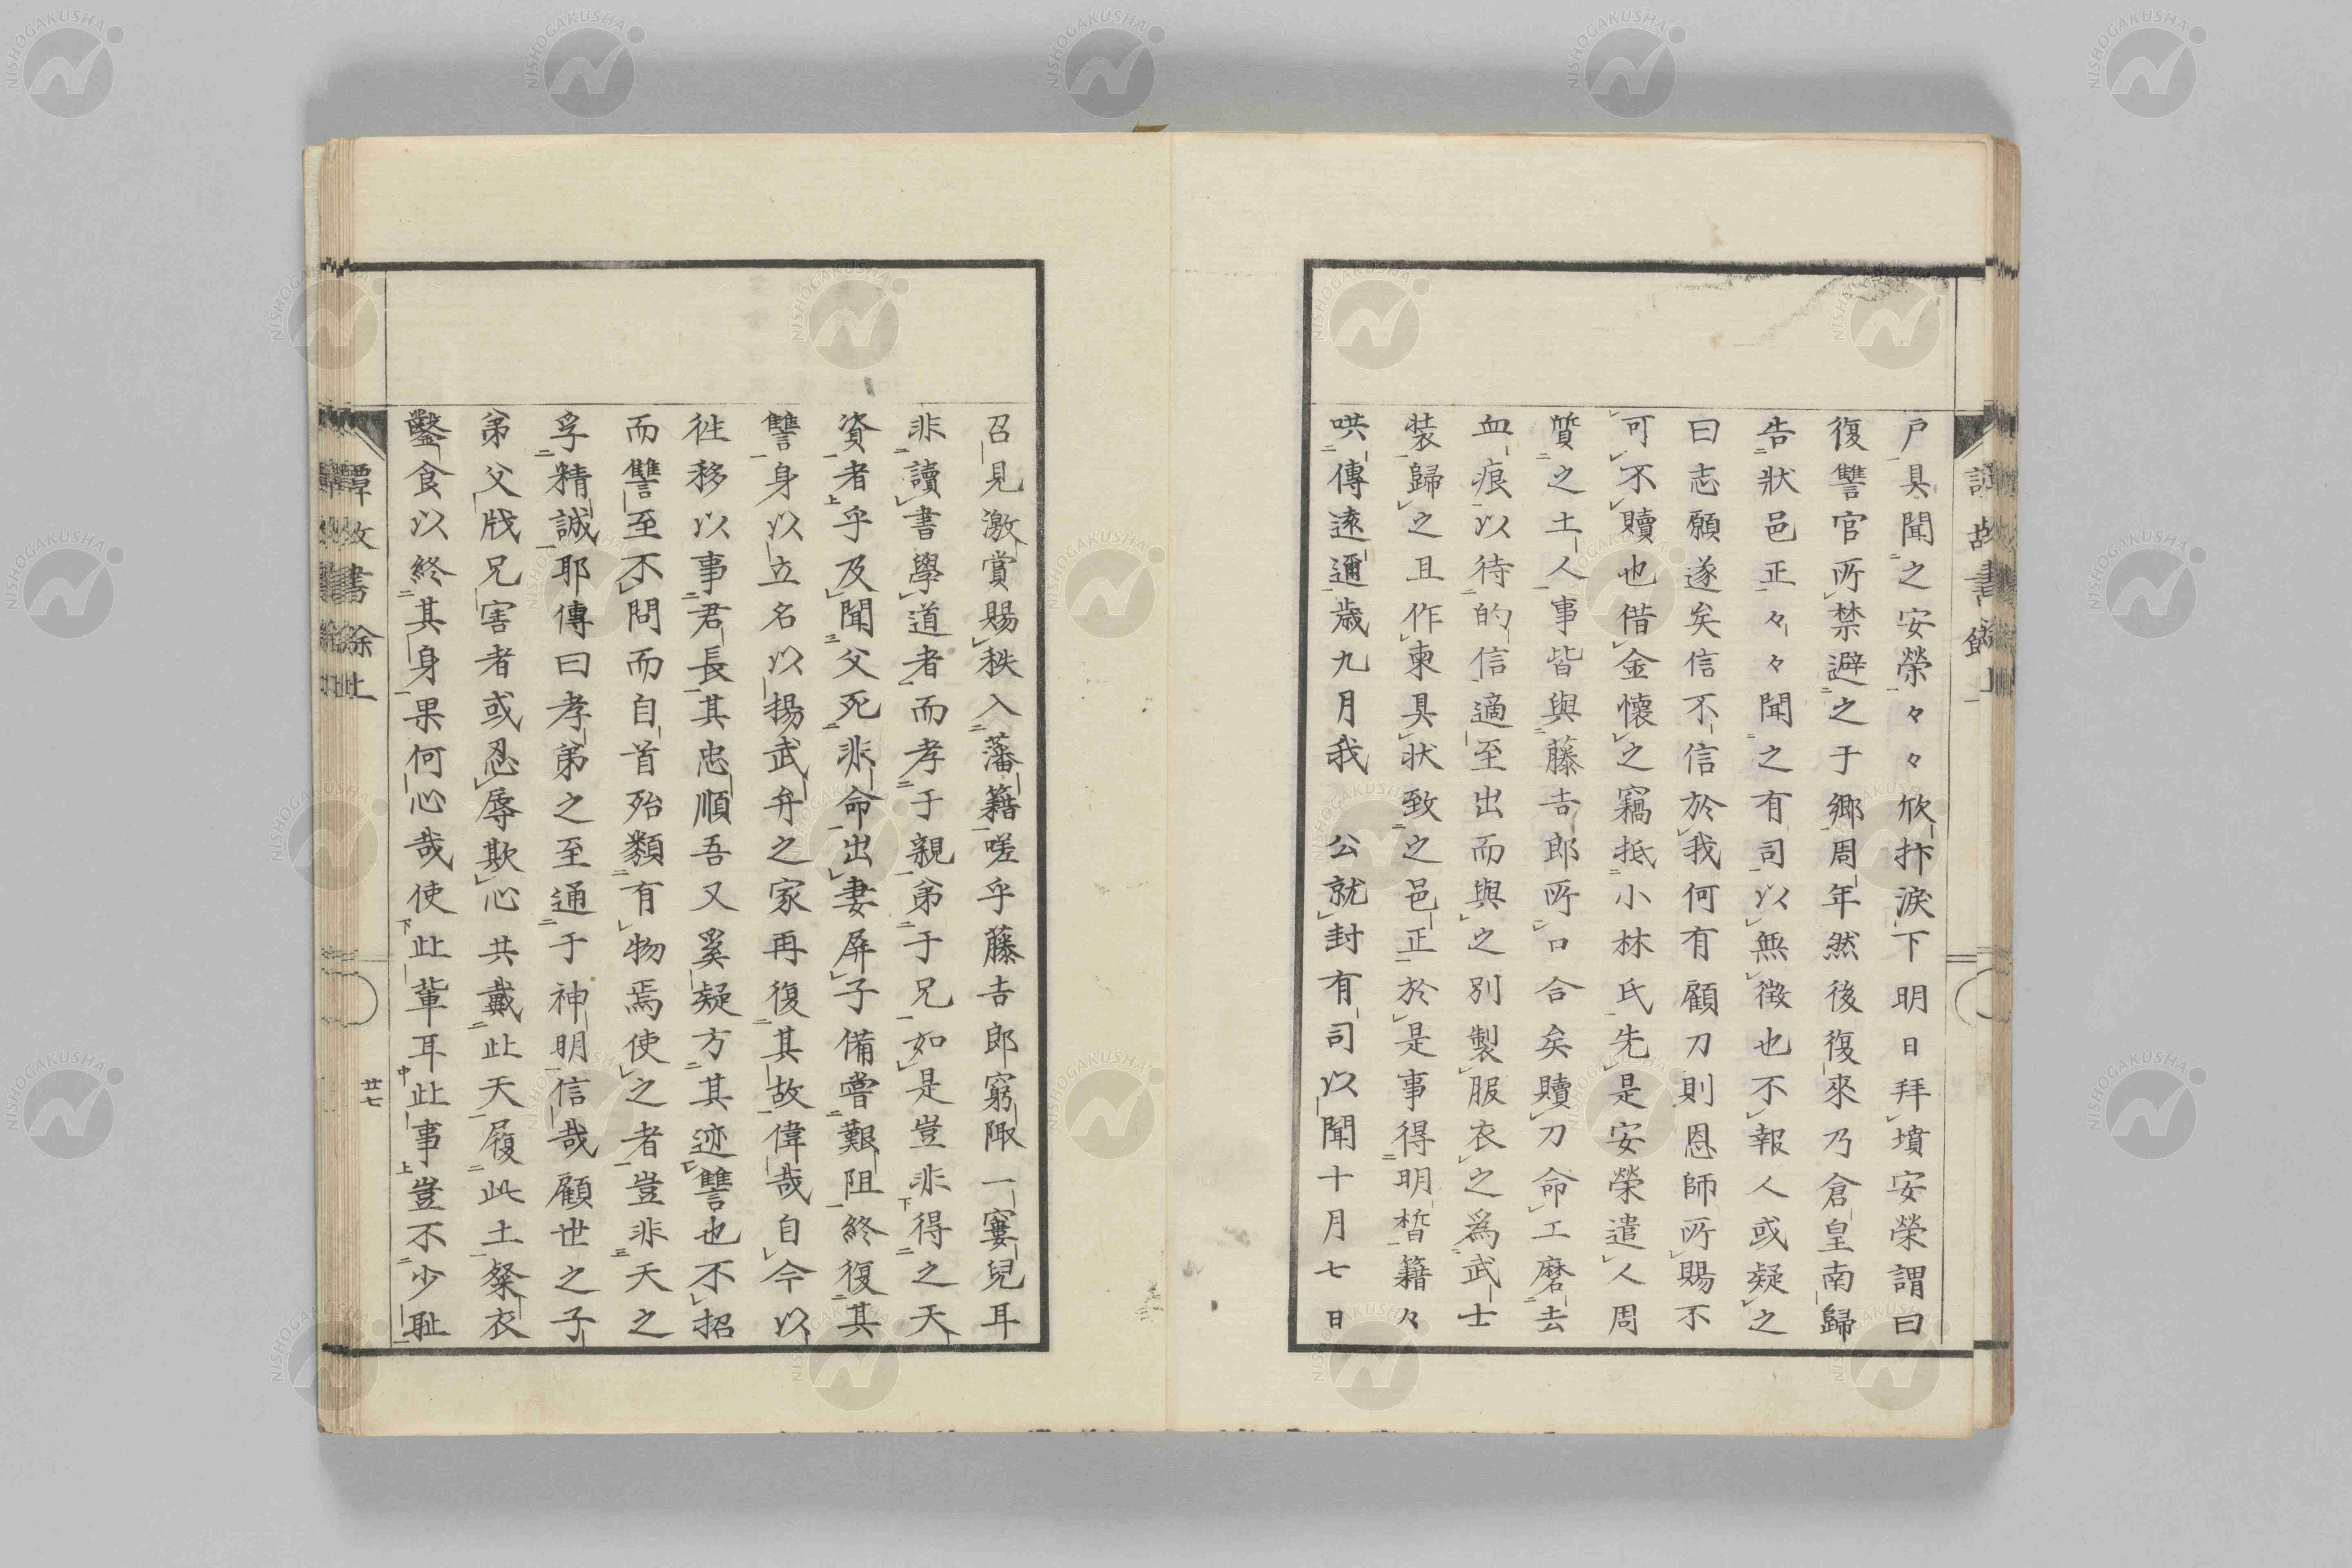 戸具聞之安榮々々欣抃淚下明日拜墳安榮謂曰
復讐官所禁避之于鄉周年然後復來乃倉皇南歸
告狀邑正々々聞之有司以無徵也不報人或疑之
曰志願遂矣信不信於我何有顧刀則恩師所賜不
可不贖也借金懷之竊抵小林氏先是安榮遣人周
質之土人事皆與藤吉郎所口合矣贖刀命工磨去
血痕以待的信適至出而與之別製服衣之爲武士
装歸之且作柬具狀致之邑正於是事得明晳籍々
哄傳遠邇歲九月我 公就封有司以聞十月七日
召見激賞賜秩入藩籍嗟乎藤吉郎窮陬一窶兒耳
非讀書學道者而孝于親弟于兄如是豈非得之天
資者乎及聞父死非命出妻屏子備嘗艱阻終復其
讐身以立名以揚武弁之家再復其故偉哉自今以
徃移以事君長其忠順吾又奚疑方其迹讐也不招
而讐至不問而自首殆類有物焉使之者豈非天之
孚精誠耶傳曰孝弟之至通于神明信哉顧世之子
弟父戕兄害者或忍辱欺心共戴此天履此土粲衣
鑿食以終其身果何心哉使此輩耳此事豈不少恥
譚故書餘上
廿七
NISHOGAKUSHA